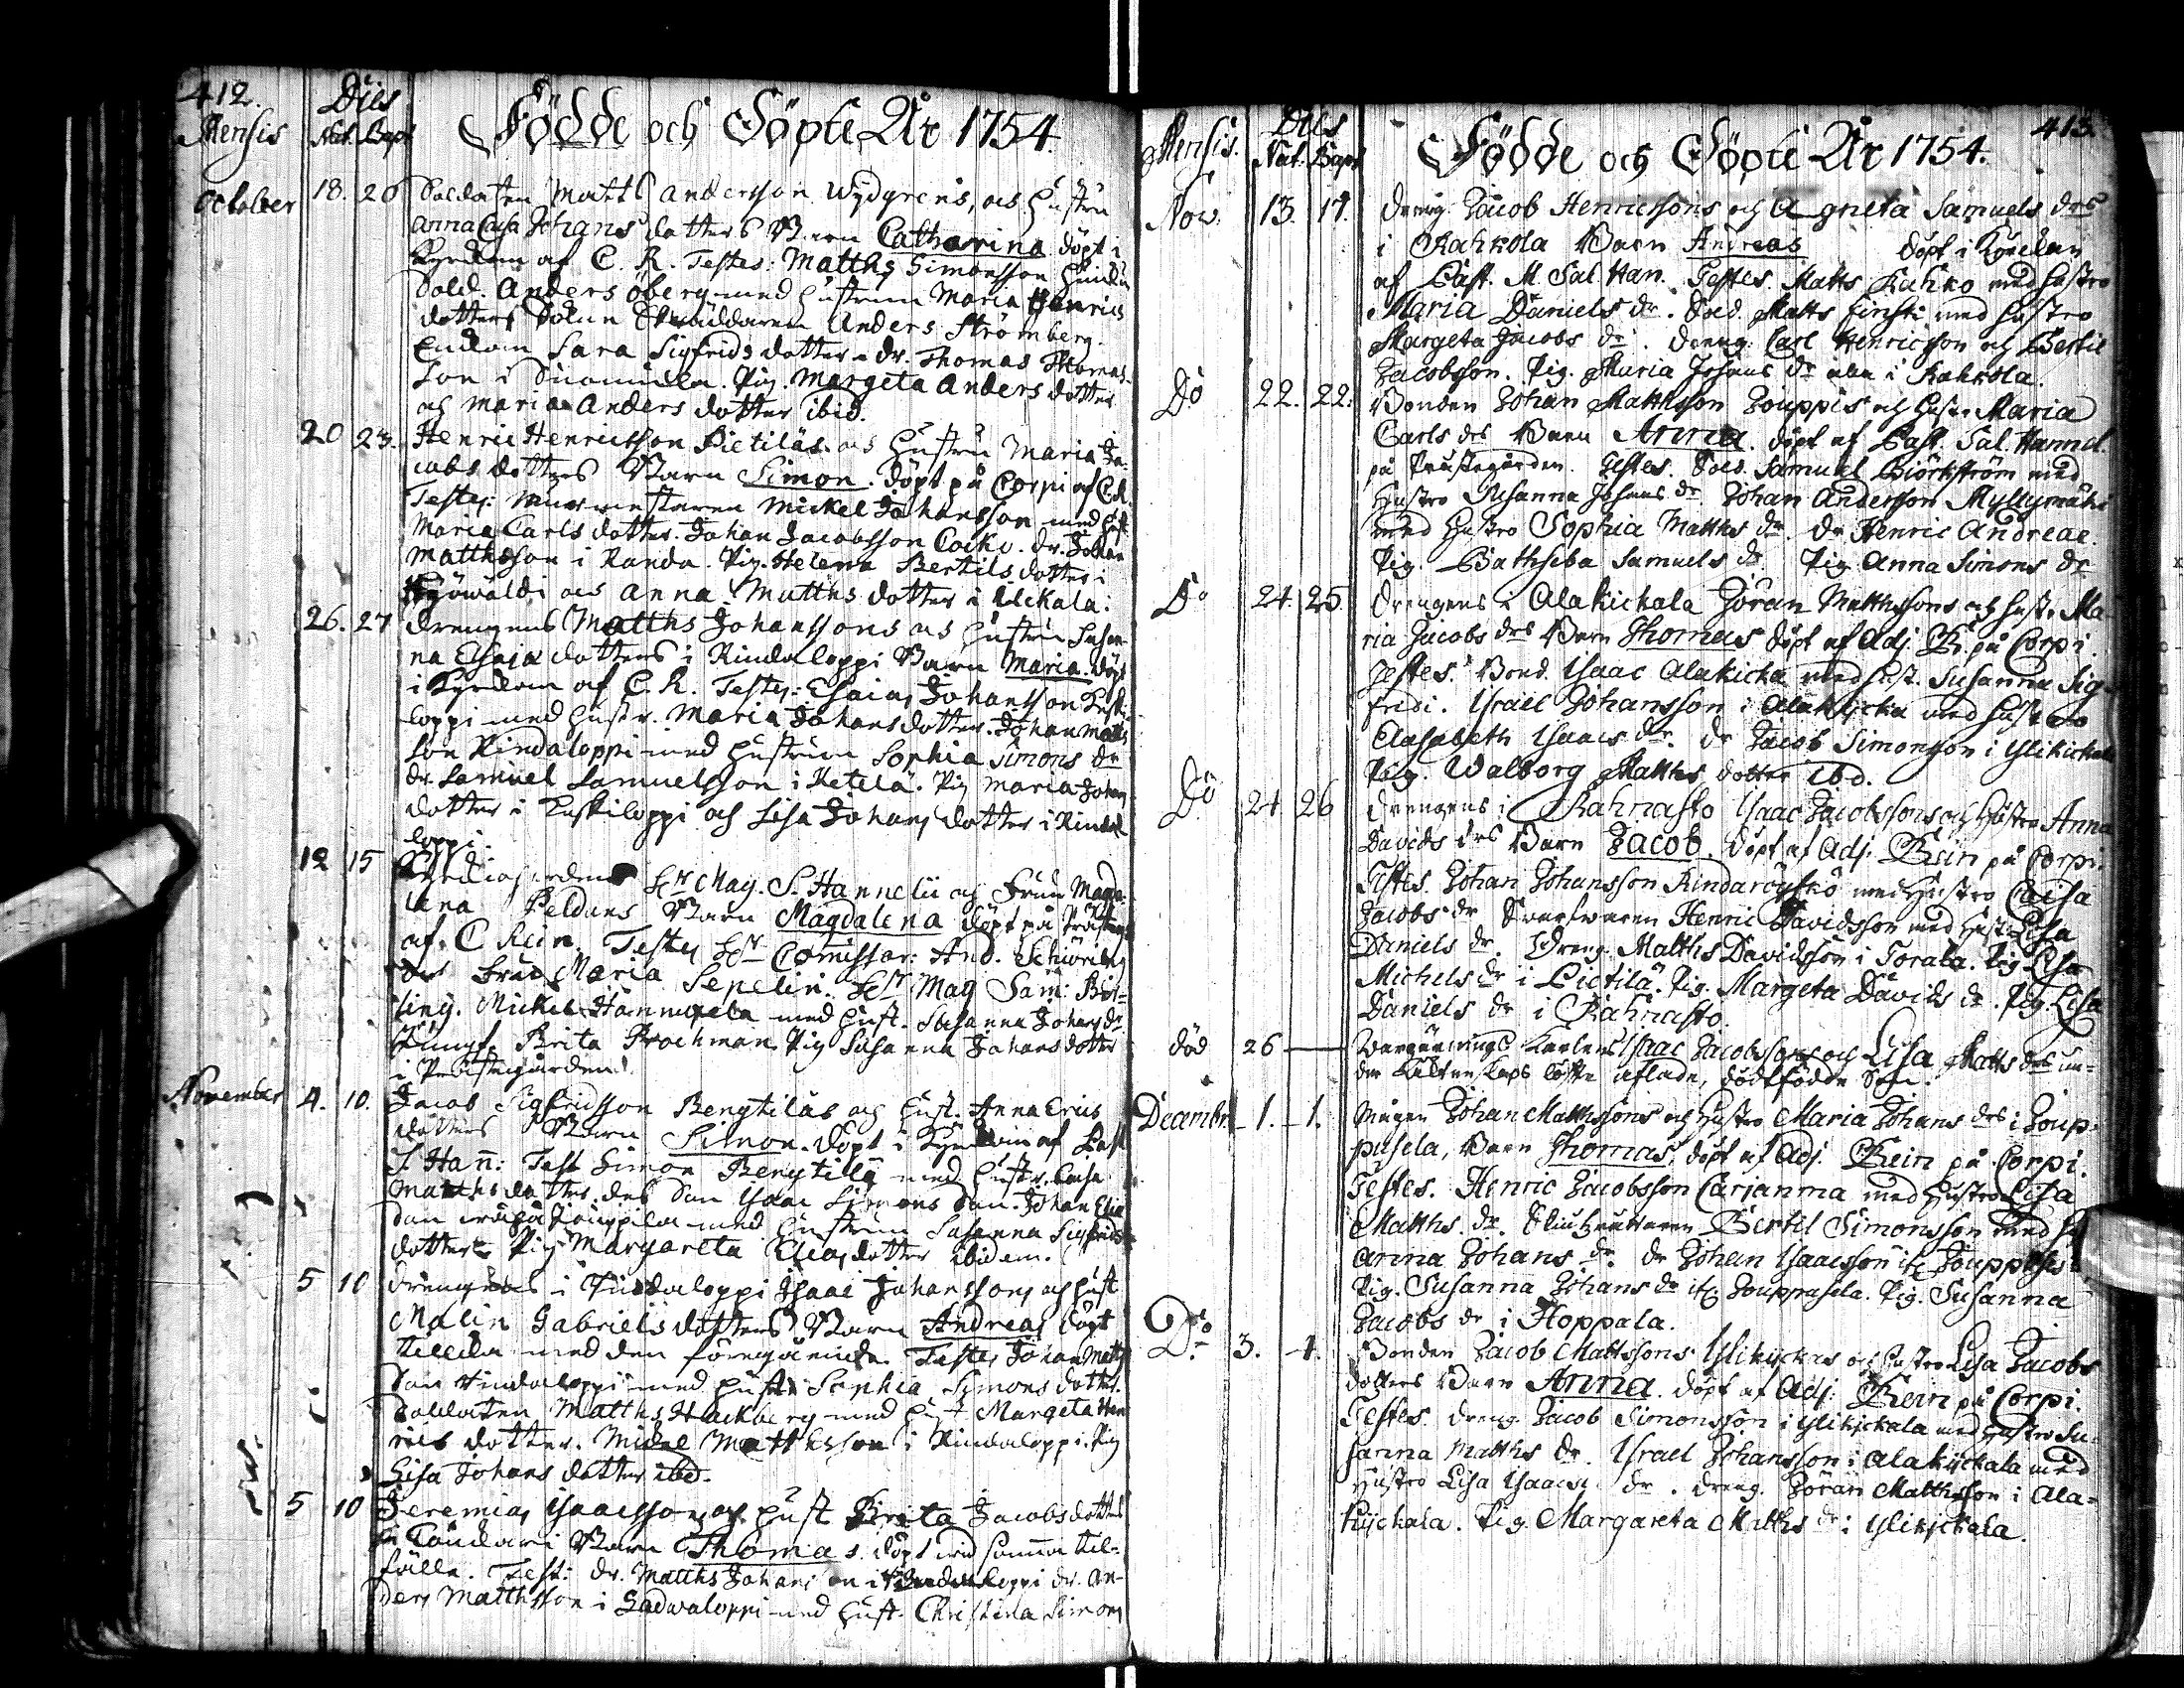 412.
Mensis
Dies
Nat. Bapt
Födde och Döpte År 1754.
October 18. 20 Soldaten Matts Andersson Wydgrens, och hustru
Anna Caisa Johans dotters Barn Catharina döpt i
Kyrckan af C. R. Testes: Matths Simonsson
Sold. Anders Öberg med hustrun Maria Henrics
dotter Anders Strömberg.
Sara Sigfrids dotter. dr. Thomas Thomas-
son i Suomusla. Pig. Margeta Anders dotter
och Maria Anders dotter ibid.
20 23. Henric Henricsson Pietiläs och hustru Maria Ja-
cobs dotters Barn Simon. döpt på Corpi af C.R.
Testes: Murmestaren Mickel Johansson med hust.
Maria Carls dotter. Johan Jacobsson Coiko. dr. Johan
Matthsson i Randa. Pig. Helena Bertils dotter i
och Anna Matths dotter i
26. 27 Drengens Matths Johanssons och hustru Susan-
na Esaiæ dotters i Rindaloppi Barn Maria. döpt
i Kyrckan af C. R. Testes: Esaias Johansson Keski-
loppi med hustr. Maria Johans dotter. Johan Matths
son Rindaloppi med hustrun Sophia Simons dr
dr. Samuel Samuelsson i Ketelä. Pig Maria Johans
dotter i Keskiloppi och Lisa Johans dotter i Rinda
loppi.
12 15 Kyrckioherdens Hr Mag. S. Hannelii och Fru Magda-
lena Peldans Barn Magdalena döpt på Prästeg.
af C Rein. Testes Hr Comissar: And.
Fru Maria Sepelin. Hr Mag Sam:
Mickel Hannuxela med hust. Susanna Johans dr
Jungf. Brita Brochman Pig Susanna Johans dotter
i Prästegården.
November 4. 10. Jacob Sigfridsson Bengtiläs och hust. Anna Erics
dotters Barn Simon. döpt i Kyrckan af Past
S. Hañ: Test Simon Bengtilä med hustr. Caisa
Matths dotter. des Son Isaac Simons Son. Johan Elia
Son Jouppila med hustrun Susanna Sigfrids
dotter Pig Margareta Elias dotter ibidem.
5 10 Drengens i Rindaloppi Isaac Johanssons och hust
Malin Gabriels dotters Barn Andreas döpt
med den föregående Testes Johan Matts
Son Rindaloppi med hustr. Sophia Symons dotter.
Soldaten Matths Hackberg med hust Margeta Hen
rics dotter. Mickel Matthsson i Rindaloppi. Pig
Lisa Johans dotter ibd.
5 10 Jeremias Isaacsson och hust Brita Jacobs dotters
i Barn Thomas. döpt wid samma til-
fälle. Test: dr. Matths Johansson i Rindaloppi dr. An-
ders Matthsson i Ladwaloppi med hust. Christina Simons
413.
Mensis.
Dies
Nat. Bapt
Födde och Döpte År 1754.
Nov. 13. 17. Dreng. Jacob Henricssons och Agneta Samuels drs
i Rahkola Barn Andreas döpt i Kyrckan
af Past. M. Sal. Han. Testes. Matts Rahko med hustro
Maria Daniels dr. Sold. Matts Finsti med hustro
Margeta Jacobs dr. Dreng. Carl Henricsson och Bertil
Jacobsson. Pig. Maria Johans dr alla i Rahkola.
Do 22. 22. Bonden Johan Matthsson Jouppis och hustr. Maria
Carls drs Barn Anna. döpt af Past. Sal. Hannel.
på Prästegården. Testes. Sold. Samuel Biörkström med
hustro Susanna Johans dr Johan Andersson Myllymäki
med hustro Sophia Matths dr. dr Henric Andreae.
Pig. Bathseba Samuels dr Pig Anna Simons dr
Do 24. 25 Drengens i Alakickala Jöran Matthssons och hustr. Ma-
ria Jacobs drs Barn Thomas döpt af Adj. R. på Corpi.
Testes. Bond. Isaac Alakicka med hust. Susanna Sig-
fridi. Israel Johansson i Alakicka med hustro
Elisabeth Isaacs dr. dr Jacob Simonsson i Ylikickala
Pig. Walborg Matths dotter ibd.
Do 24 26 Drengens i Rahnasto Isaac Jacobssons och Hustro Anna
Davids drs Barn Jacob. döpt af Adj. Rein på Corpi.
Testes. Johan Johansson Rindaröyskö med Hustro Caisa
Jacobs dr Svarfvaren Henric Davidsson med hustr. Lisa
Daniels dr. Dreng. Matths Davidsson i Torala. Pig Lisa
Michels dr i Pietilä. Pig. Margeta Davids dr. Pig. Lisa
Daniels dr i Rahnasto.
död 26 — Isaac Jacobssons och Lisa Matts drs un-
der Ächtenskaps löfte aflade, dödfödde Son.
Decembr. 1. 1. Mågen Johan Matthssons och Hustro Maria Johans drs i Joup-
pusela, Barn Thomas, döpt af Adj. Rein på Corpi.
Testes. Henric Jacobsson Carjanma med Hustro Lisa
Matths dr. Bertil Simonsson med
Anna Johans dr. dr Johan Isaacsson
Pig. Susanna Johans dr Pig. Susanna
Jacobs dr i Hoppala.
Do 3. 4. Bonden Jacob Mattssons Ylikyckas och hustro Lisa Jacobs
dotters Barn Anna. döpt af Adj. Rein på Corpi.
Testes. Dreng. Jacob Simonsson i Ylikickala med hustro Su-
sanna Matths dr. Israel Johansson i Alakyckala med
hustro Lisa Isaacs dr. dreng. Jöran Matthsson i Ala-
kyckala. Pig. Margareta Matths dr i Ylikickala.